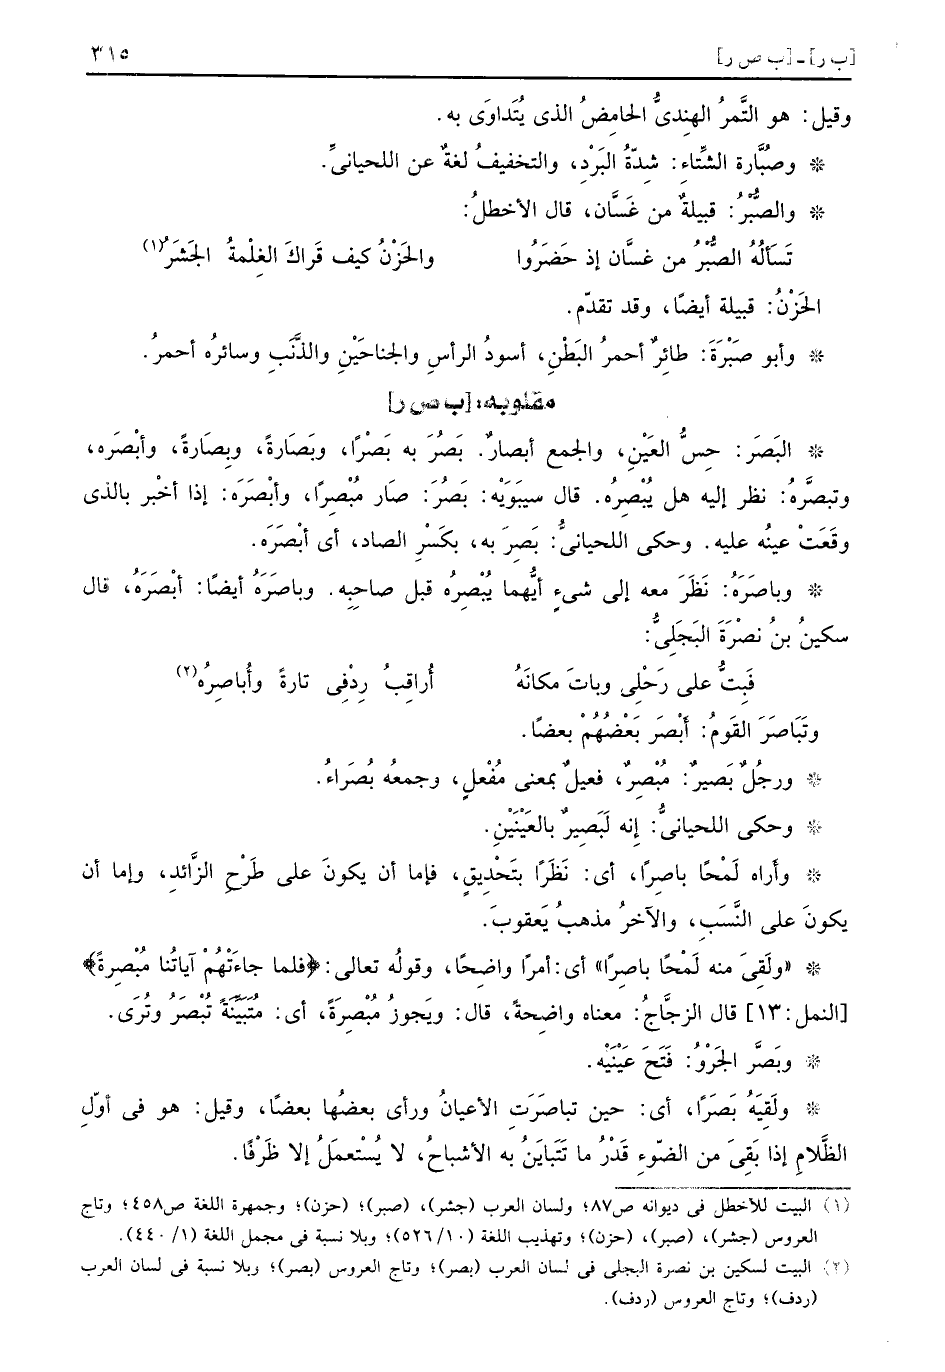 [ب ر] - [ب ص ر]
٣١٥
وقيل: هو التَّمرُ الهِندىُّ الحامِضُ الذى يُتَداوَى به.
* وصُبَّارة الشِّتاء: شِدّةُ البَرْدِ، والتخفيفُ لغةٌ عن اللحيانىِّ.
* والصُّبْرُ: قبيلةٌ من غَسَّان، قال الأخطلُ:
تَسألُهُ الصُّبْرُ من غسَّان إذ حَضَرُوا والحَزْنُ كيف قَراكَ الغِلْمةُ الجَشَرُ(١)
الحَزْنُ: قبيلة أيضًا، وقد تقدّم.
* وأبو صَبْرَةَ: طائِرٌ أحمرُ البَطْنِ، أسودُ الرأسِ والجناحَيْنِ والذَّنَبِ وسائرُه أحمرُ.
مقلوبه: [ب ص ر]
* البَصَر: حِسُّ العَيْنِ، والجمع أبصارٌ. بَصُرَ به بَصَرًا، وبَصَارةً، وبِصَارةً، وأبْصَره،
وتبصَّرهُ: نظر إليه هل يُبْصِرُه. قال سيبَوَيْه: بَصُرَ: صَار مُبْصِرًا، وأبْصَرَه: إذا أخْبر بالذى
وقَعَتْ عينُه عليه. وحكى اللحيانىُّ: بَصِرَ به، بكَسْرِ الصاد، أى أبْصَرَه.
* وباصَرَهُ: نَظَرَ معه إلى شىءٍ أيُّهما يُبْصِرُه قبل صاحِبِه. وباصَرَهُ أيضًا: أبْصَرَهُ، قال
سكينُ بنُ نصْرَةَ البَجَلِىُّ:
فَبِتُّ على رَحْلِى وباتَ مكانَهُ أُراقِبُ رِدْفِى تارةً وأُباصِرُه(٢)
وتَبَاصَرَ القَومُ: أَبْصَرَ بَعْضُهُمْ بعضًا.
* ورجُلٌ بَصيرٌ: مُبْصِرٌ، فعيلٌ بمعنى مُفْعِلٍ، وجمعُه بُصَراءُ.
* وحكى اللحيانىُّ: إنه لَبَصِيرٌ بالعَيْنَيْنِ.
* وأَراه لَمْحًا باصِرًا، أى: نَظَرًا بتَحْديقٍ، فإما أن يكونَ على طَرْحِ الزَّائدِ، وإما أن
يكونَ على النَّسَبِ، والآخرُ مذهبُ يَعقوبَ.
* «ولَقِىَ منه لَمْحًا باصِرًا» أى: أمرًا واضحًا، وقولُه تعالى: ﴿فلما جاءَتْهُمْ آياتُنا مُبْصِرةً﴾
[النمل: ١٣] قال الزجَّاجُ: معناه واضحةً، قال: ويَجوزُ مُبْصَرَةً، أى: مُتَبَيِّنَةً تُبْصَرُ وتُرَى.
* وبَصَّر الجَرْوُ: فَتَحَ عَيْنَيْه.
* ولَقِيَهُ بَصَرًا، أى: حين تباصَرَتِ الأعيانُ ورأى بعضُها بعضًا، وقيل: هو فى أوّلِ
الظَّلامِ إذا بَقِىَ من الضّوءِ قَدْرُ ما تَتَبايَنُ به الأشباحُ، لا يُسْتعمَلُ إلا ظَرْفًا.
(١) البيت للأخطل فى ديوانه ص٨٧؛ ولسان العرب (جشر)، (صبر)؛ (حزن)؛ وجمهرة اللغة ص٤٥٨؛ وتاج
العروس (جشر)، (صبر)، (حزن)؛ وتهذيب اللغة (٥٢٦/١٠)؛ وبلا نسبة فى مجمل اللغة (٤٤٠/١).
(٢) البيت لسكين بن نصرة البجلى فى لسان العرب (بصر)؛ وتاج العروس (بصر)؛ وبلا نسبة فى لسان العرب
(ردف)؛ وتاج العروس (ردف).